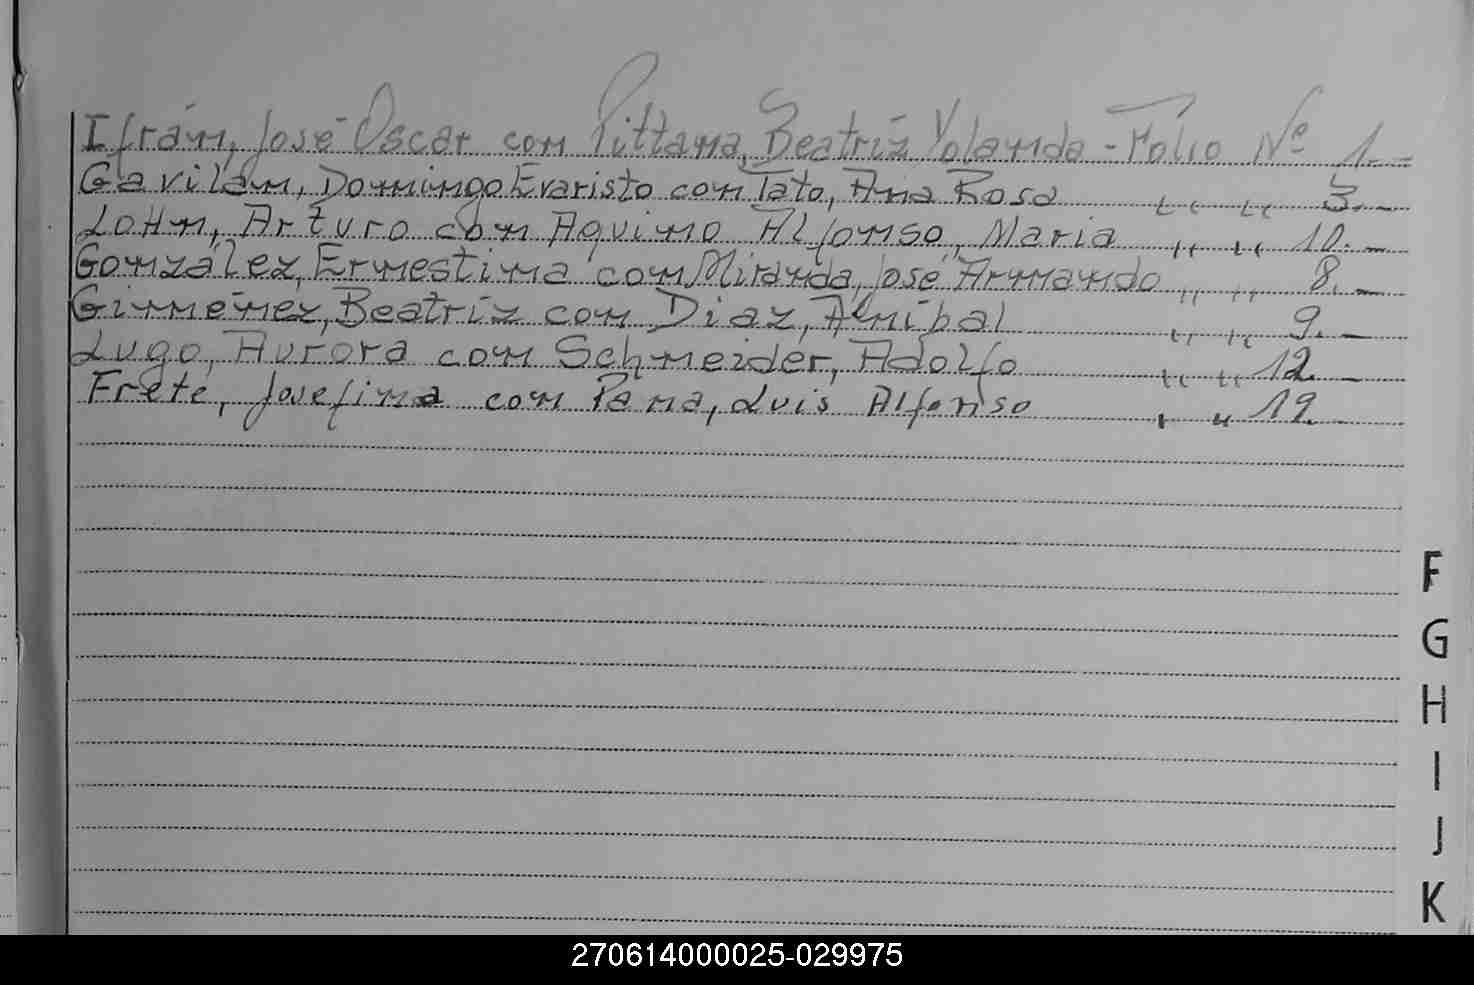 Ifrán, José Oscar con Pittana, Beatríz Yolanda - Folio Nº 1.-
Gavilán, Domingo Evaristo con Tato, Ana Rosa " " 3.-
Lohn, Arturo con Aquino Alfonso, Maria " " 10.-
González, Ernestina con Miranda, José Armando " " 8.-
Giménez, Beatríz con Diaz, Anibal " " 9.-
Lugo, Aurora con Schneider, Adolfo " " 12.-
Frete, Josefina con Pana, Luis Alfonso " " 19.-
F
G
H
I
J
K
270614000025-029975